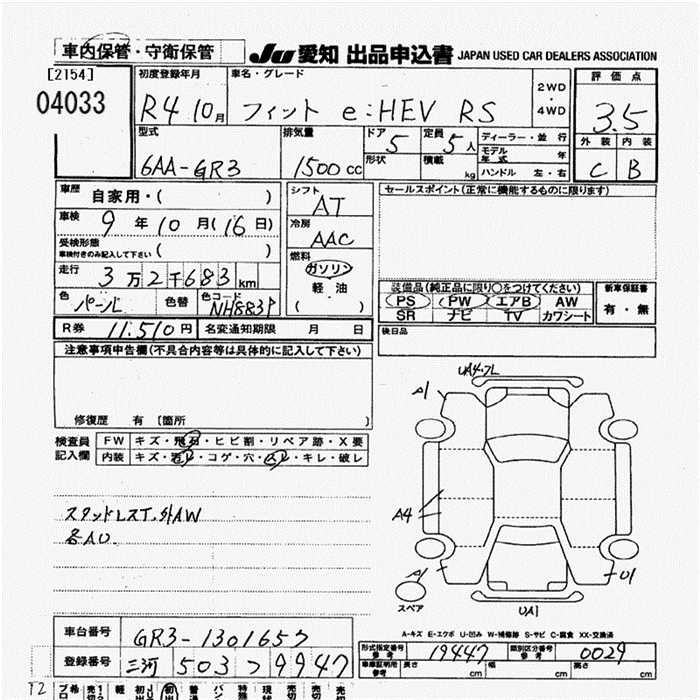 車内保管・守衛保管 JU 愛知 出品申込書 JAPAN USED CAR DEALERS ASSOCIATION
[2154]
04033
初度登録年月 車名・グレード 2WD・4WD 評価点
R4 10月 フィット e:HEV RS 3.5
型式 排気量 ドア 5 定員 5人 ディーラー・並行 外装 内装
6AA-GR3 1500cc 形状 積載 kg モデル年式 年 C B
ハンドル 左・右
車歴 自家用・( ) シフト AT セールスポイント(正常に機能するものに限ります)
車検 9年10月(16日) 冷房 AAC
受検形態 ( )
車検付きのみ記入して下さい
燃料 ガソリン 軽油 ( )
走行 3万2千683km
色 パール 色替 色コード NH883P
装備品(純正品に限り○をつけてください) 新車保証書
PS PW エアB AW 有・無
SR ナビ TV カワシート
R券 11,510円 名変通知期限 月 日 後日品
注意事項申告欄(不具合内容等は具体的に記入して下さい)
修復歴 有 [箇所 ]
検査員記入欄 FW キズ・飛石・ヒビ割・リペア跡・X要
内装 キズ・汚レ・コゲ・穴・スレ・キレ・破レ
スタッドレスT,外AW
各AU.
UA4.7L
A1
A4
A1
U1
UA1
スペア
A-キズ E-エクボ U-凹み W-補修跡 S-サビ C-腐食 XX-交換済
車台番号 GR3-1301657
登録番号 三河 503 つ 9947
形式指定番号 参考 19447 類別区分番号 参考 0029
車庫証明用 参考 長さ cm 幅 cm 高さ cm